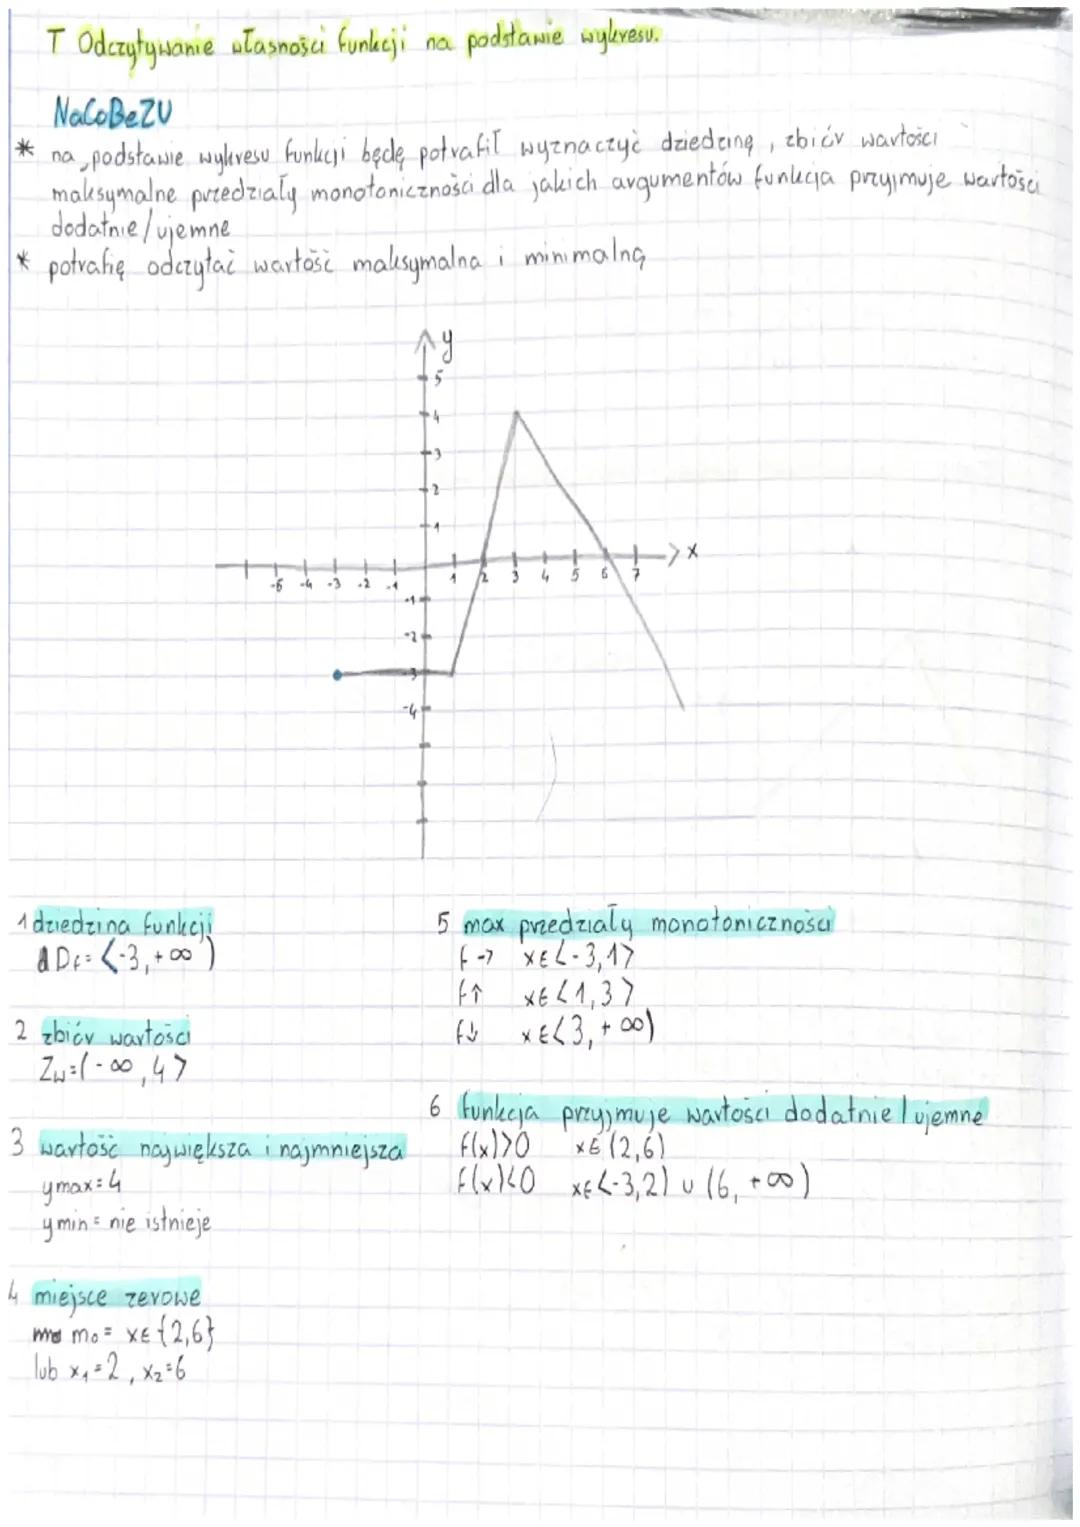 T Odczytywanie własności funkcji na podstawie wykresu.
NaCoBeZU
* na podstawie wykresu funkcji będę potrafił wyznaczyć dziedzinę, zbiór wartości
maksymalne przedziały monotoniczności dla jakich argumentów funkcja przyjmuje wartości
dodatnie/ujemne
* potrafię odczytać wartość maksymalna i minimalną
y
5
4
3
2
1
x
-5 -4 -3 -2 -1 1 2 3 4 5 6 7
-1
-2
-3
-4
1 dziedzina funkcji
Df = <-3, +∞)
2 zbiór wartości
Zw = (-∞, 4>
3 wartość największa i najmniejsza
ymax = 4
ymin = nie istnieje
4 miejsce zerowe
m0 = x∈{2,6}
lub x₁=2, x₂=6
5 max przedziały monotoniczności
f→ x∈<-3,1>
f↑ x∈<1,3>
f↓ x∈<3, +∞)
6 funkcja przyjmuje wartości dodatnie/ujemne
f(x)>0 x∈(2,6)
f(x)<0 x∈<-3,2) ∪ (6, +∞)